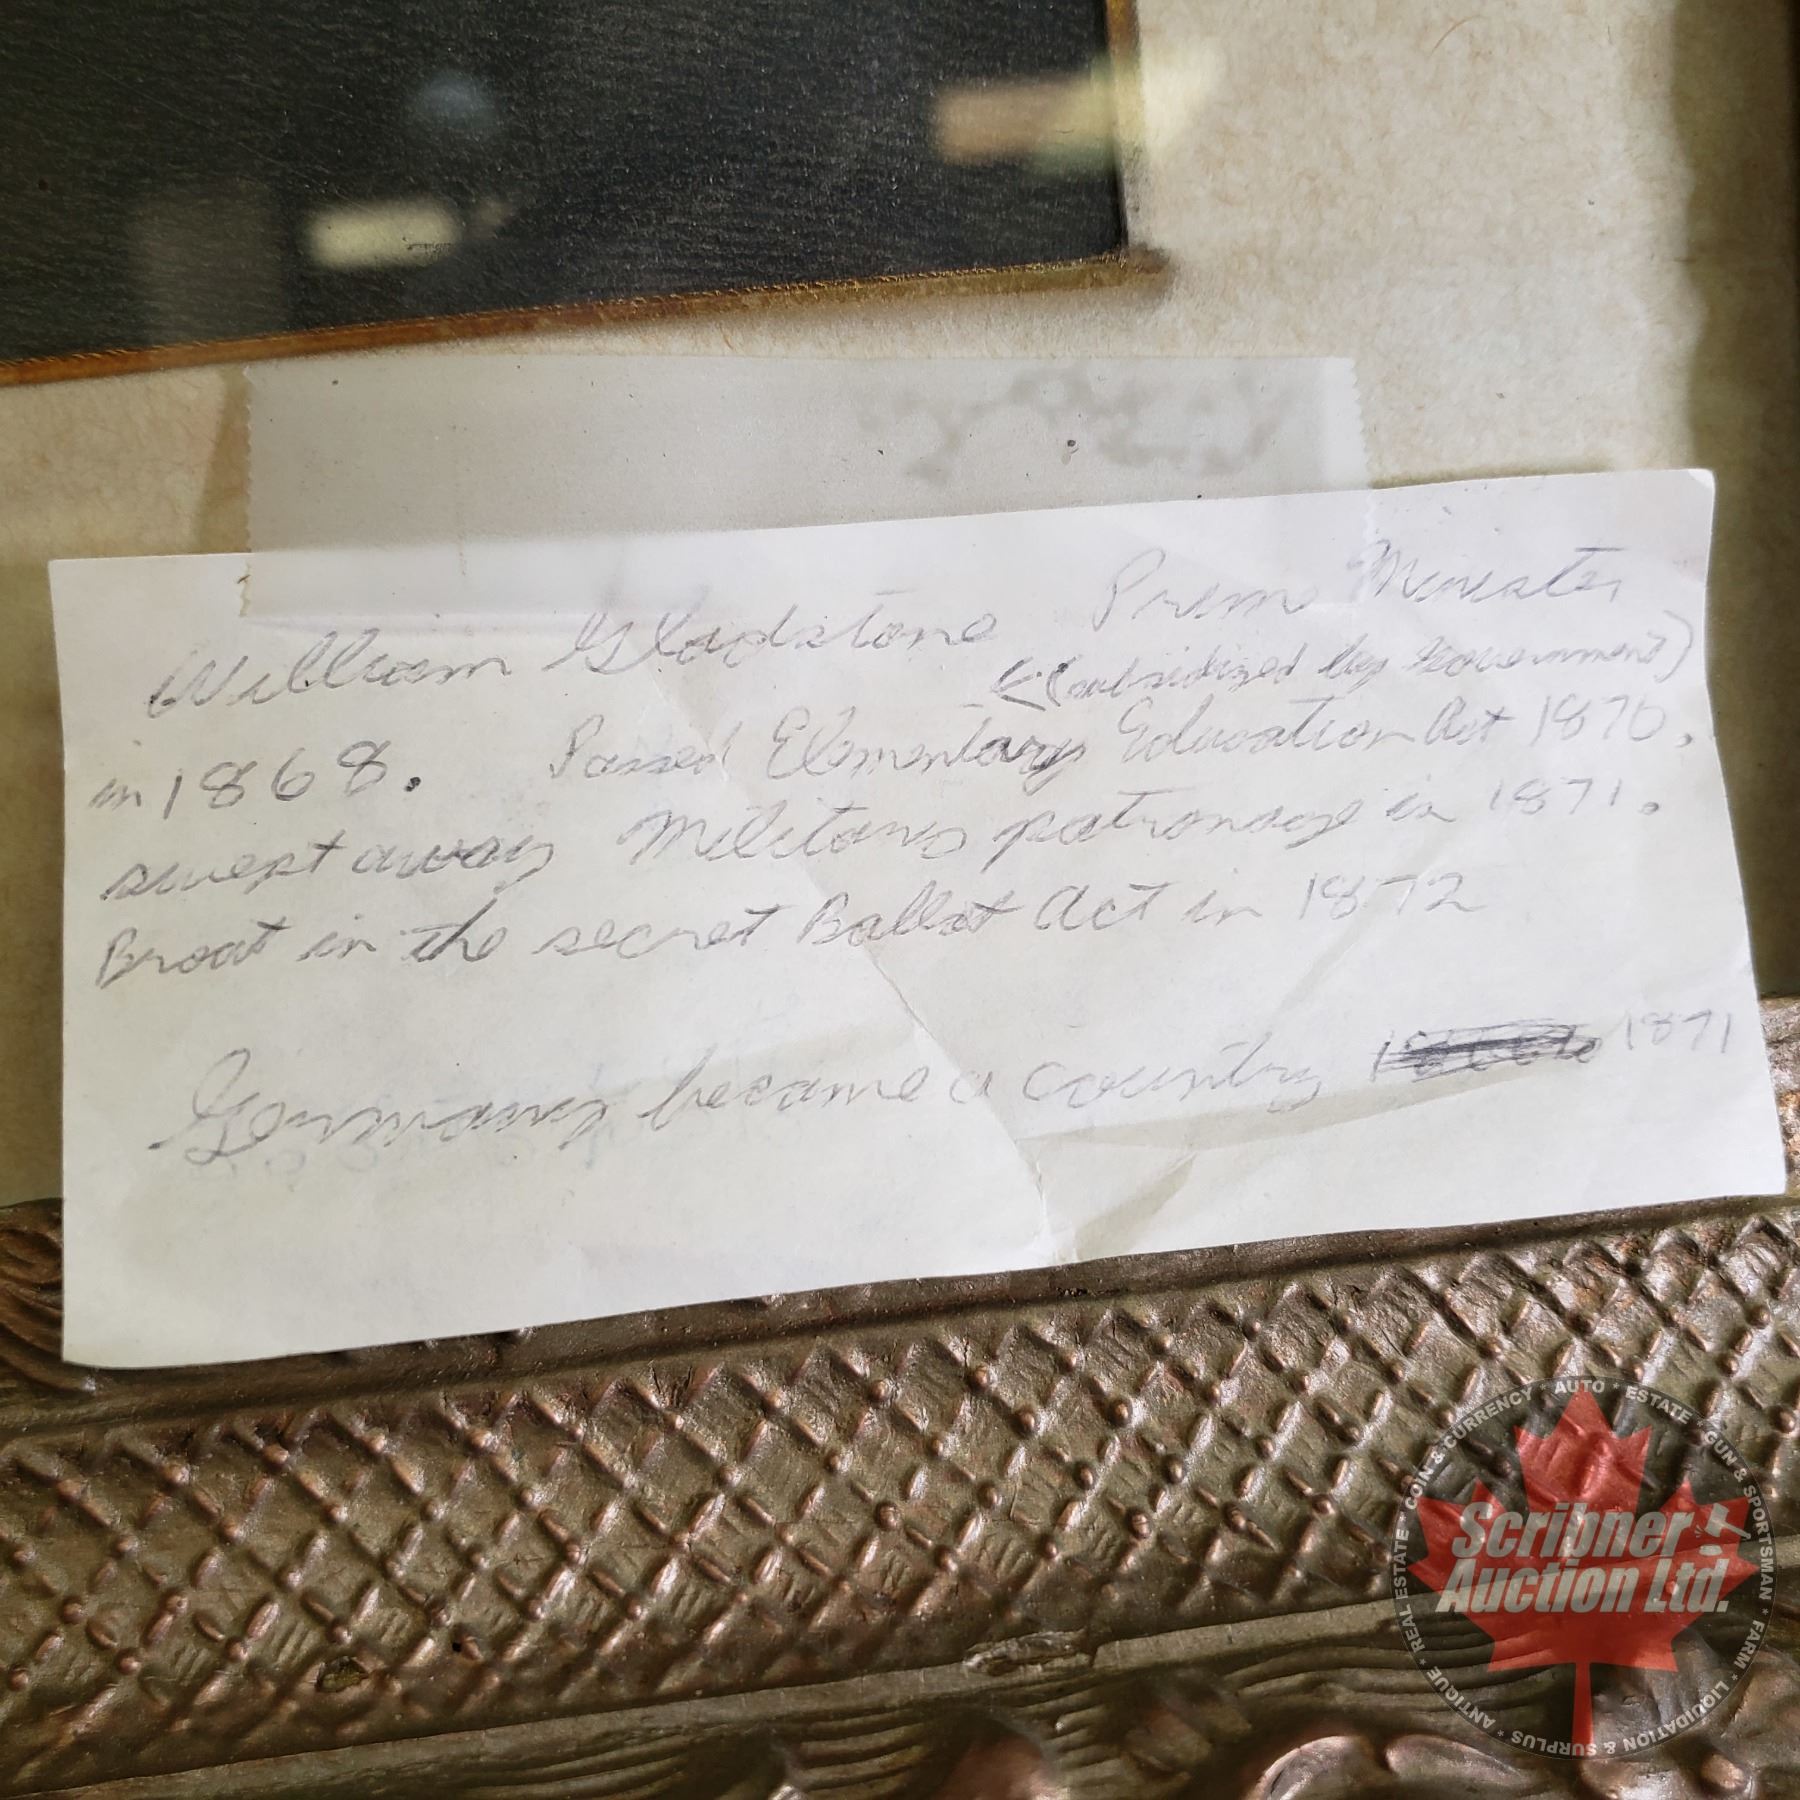 William Gladstone Prime Minister
<(subsidized by Government)
in 1868. Passed Elementary Education Act 1870.
swept away Military patronage in 1871.
Broat in the secret Ballot Act in 1872
Germany became a country 1871
COIN & CURRENCY * AUTO * ESTATE * GUN & SPORTSMAN * FARM * LIQUIDATION & SURPLUS * ANTIQUE * REAL ESTATE *
Scribner
Auction Ltd.